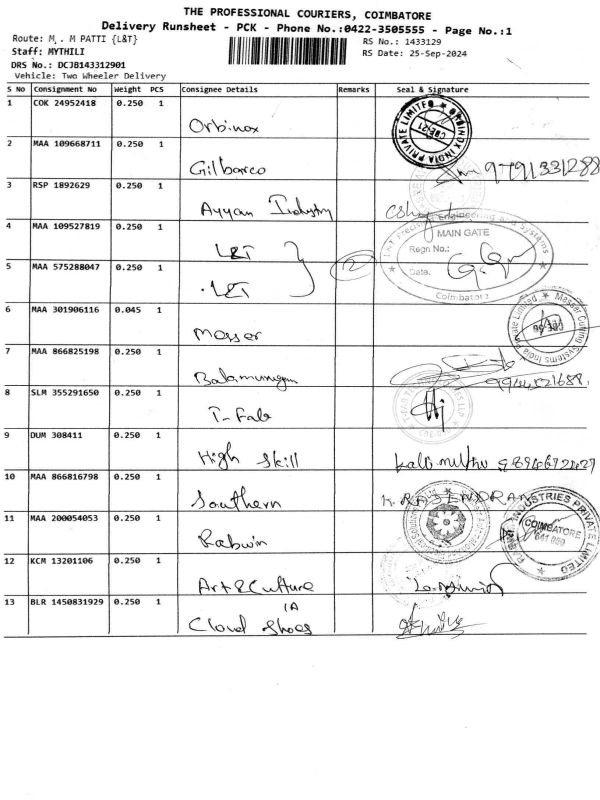 THE PROFESSIONAL COURIERS, COIMBATORE
Delivery Runsheet - PCK - Phone No.:0422-3505555 - Page No.:1
Route: M, . M PATTI {L&T}
RS No.: 1433129
Staff: MYTHILI
RS Date: 25-Sep-2024
DRS No.: DCJB143312901
Vehicle: Two Wheeler Delivery
S No Consignment No Weight PCS Consignee Details Remarks Seal & Signature
1 COK 24952418 0.250 1 Orbinox
ORBINOX INDIA PRIVATE LIMITED
2 MAA 109668711 0.250 1 Gilbarco 9791331288
3 RSP 1892629 0.250 1 Ayyan Industry
4 MAA 109527819 0.250 1 L&T
L&T Precision Engineering and Systems
MAIN GATE
Regn No.:
Date.
Coimbatore
5 MAA 575288047 0.250 1 L&T 12
6 MAA 301906116 0.045 1 Messer
Messer Cutting Systems India Private Limited
7 MAA 866825198 0.250 1 Balamurugan
8 SLM 355291650 0.250 1 T-Fab
9 DUM 308411 0.250 1 High Skill
10 MAA 866816798 0.250 1 Southern K. RAJENDRAN
INDUSTRIES PRIVATE LIMITED
COIMBATORE
11 MAA 200054053 0.250 1 Rabwin
12 KCM 13201106 0.250 1 Art & Culture
13 BLR 1450831929 0.250 1 IA
Cloud Shoes